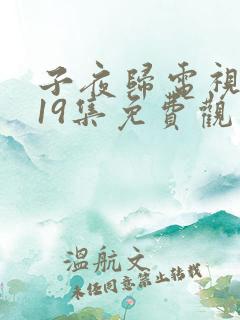 子夜歸電視
19集免費觀
溫航文
未经同意禁止转载